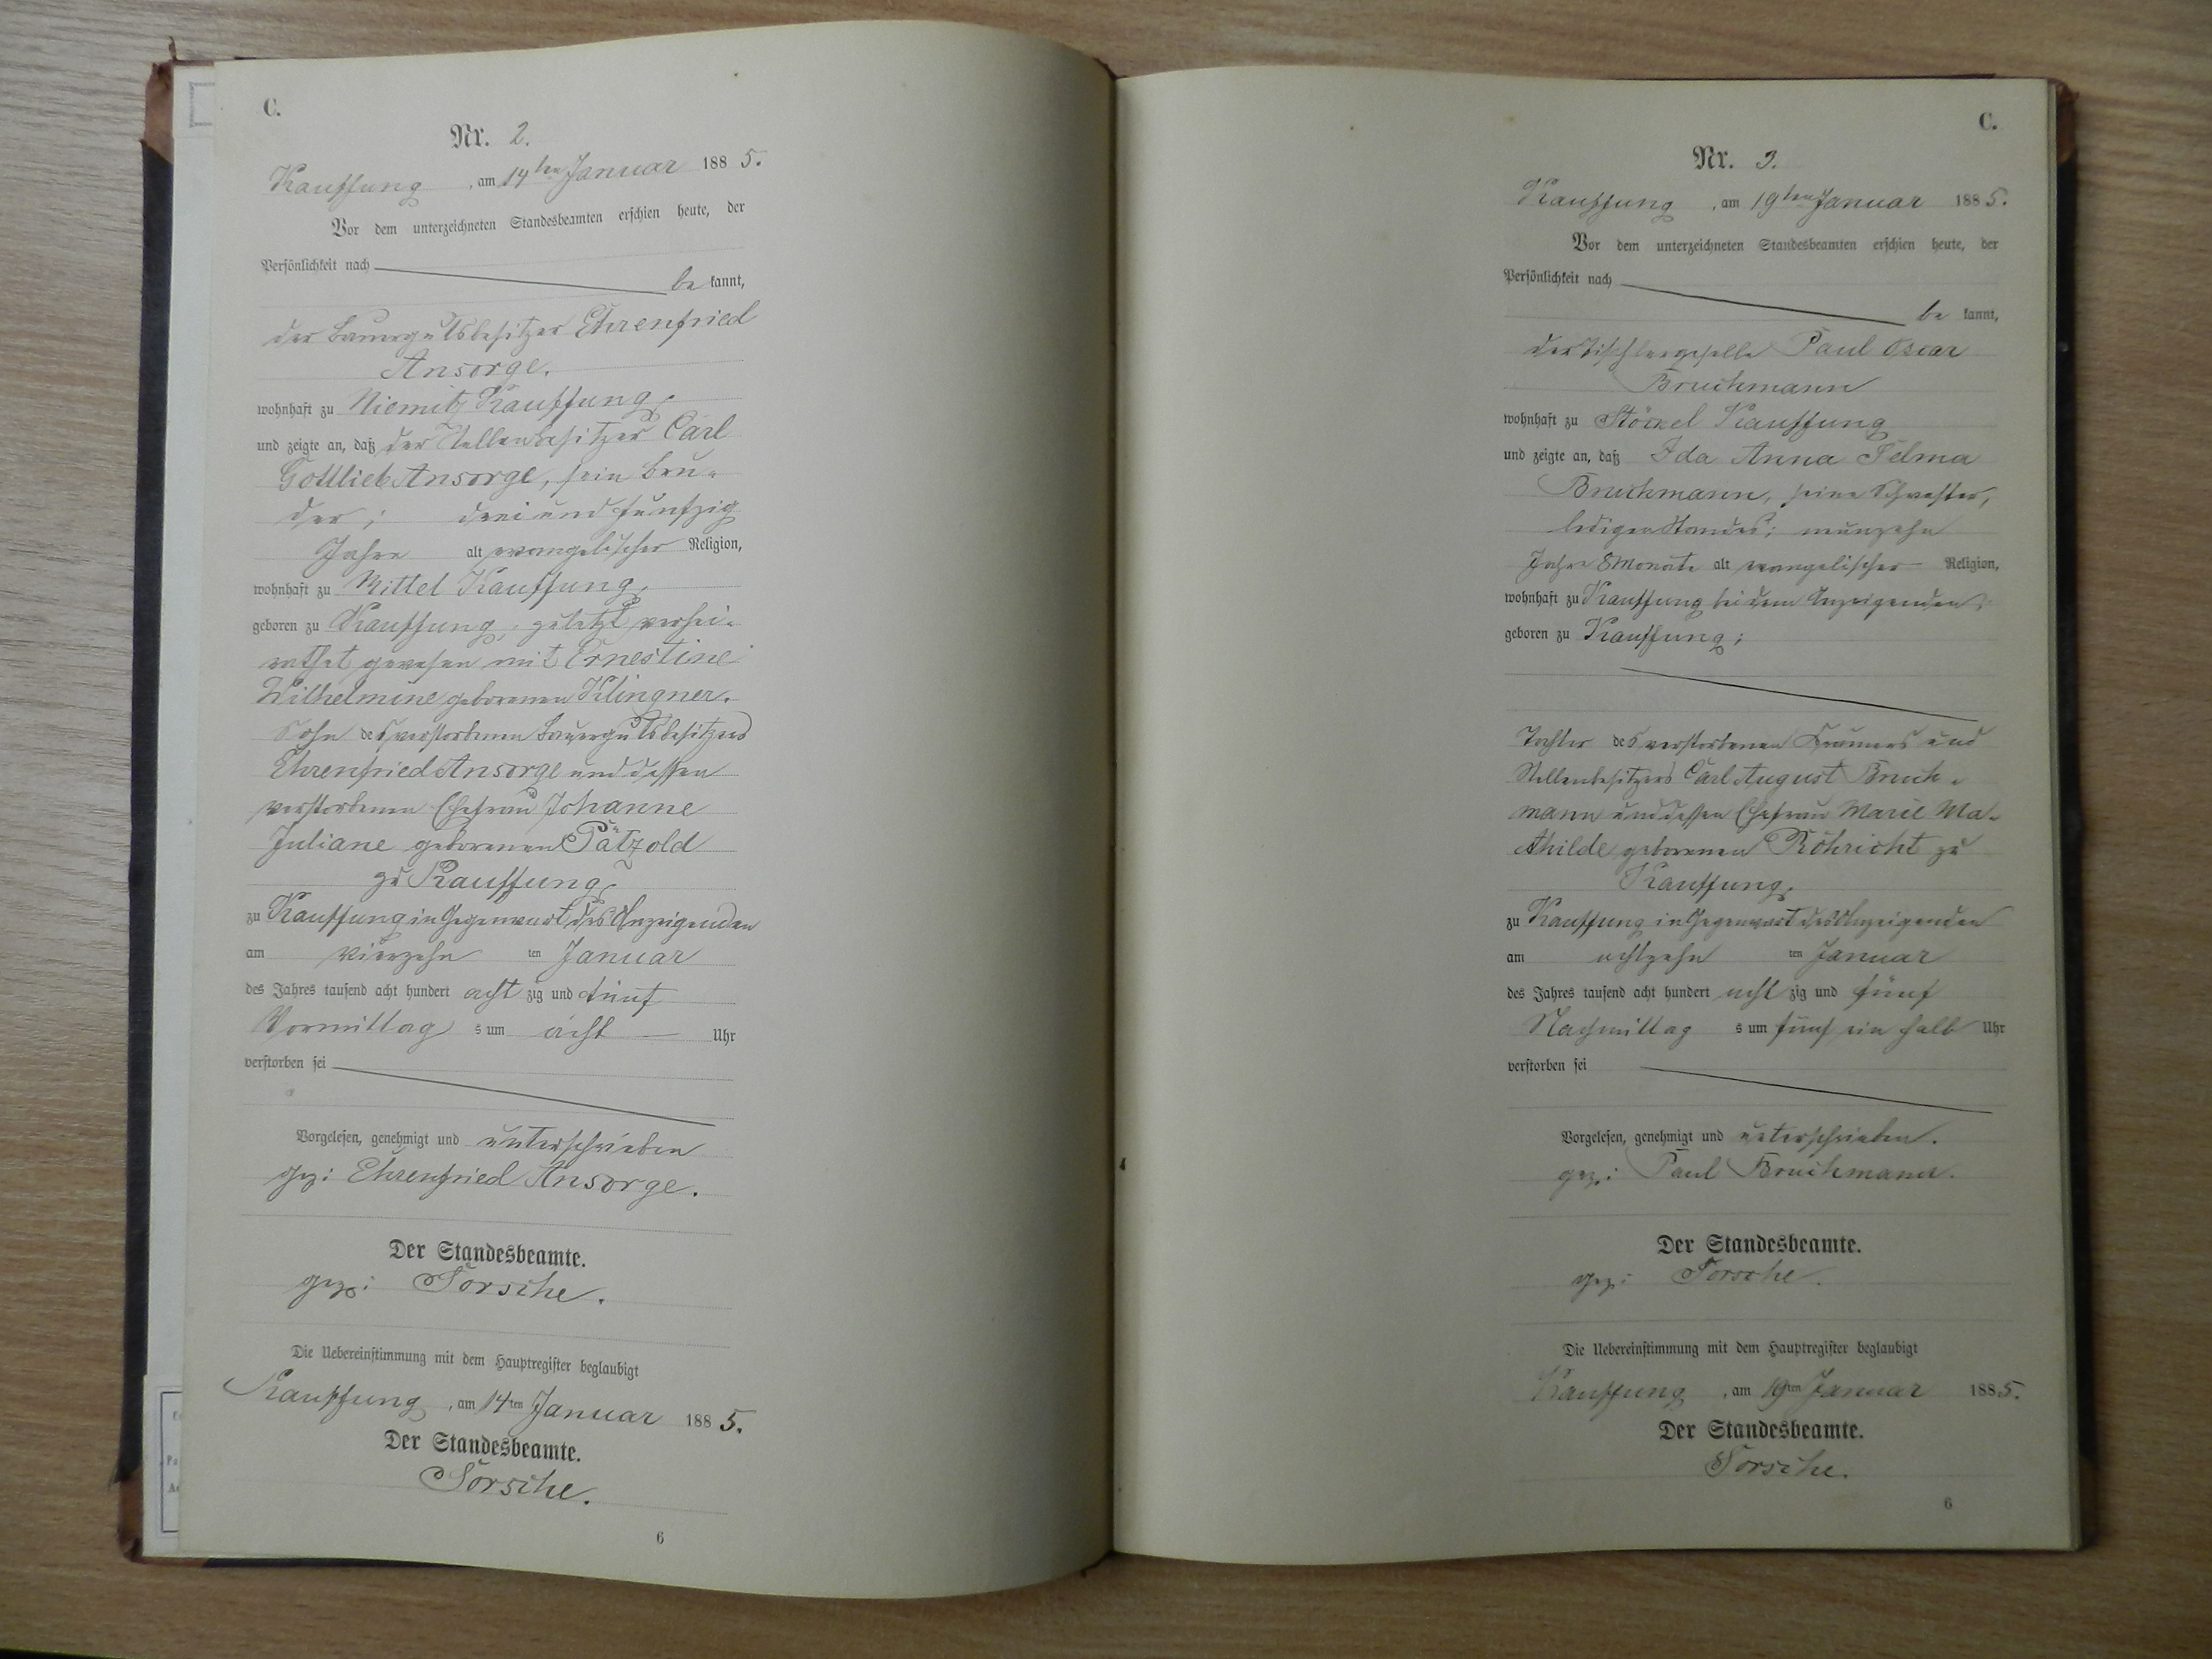 C.
Nr. 2.
Kauffung, am 14ten Januar 1885.
Vor dem unterzeichneten Standesbeamten erschien heute, der
Persönlichkeit nach
be kannt,
der Bauergutsbesitzer Ehrenfried
Ansorge,
wohnhaft zu Niemitz Kauffung,
und zeigte an, daß der Stellenbesitzer Carl
Gottlieb Ansorge, sein Bru-
der; drei und funfzig
Jahre alt evangelischer Religion,
wohnhaft zu Mittel Kauffung,
geboren zu Kauffung, zuletzt verhei-
rathet gewesen mit Ernestine
Wilhelmine geborenen Klingner.
Sohn des verstorbenen Bauergutsbesitzers
Ehrenfried Ansorge und dessen
verstorbenen Ehefrau Johanne
Juliane geborenen Pätzold
zu Kauffung,
zu Kauffung in Gegenwart des Anzeigenden
am vierzehn ten Januar
des Jahres tausend acht hundert acht zig und fünf
Vormittag s um acht Uhr
verstorben sei
Vorgelesen, genehmigt und unterschrieben
gez: Ehrenfried Ansorge.
Der Standesbeamte.
gez: Torsche.
Die Uebereinstimmung mit dem Hauptregister beglaubigt
Kauffung, am 14ten Januar 1885.
Der Standesbeamte.
Torsche.
6
C.
Nr. 3.
Kauffung, am 19ten Januar 1885.
Vor dem unterzeichneten Standesbeamten erschien heute, der
Persönlichkeit nach
be kannt,
der Tischlergeselle Paul Oscar
Bruchmann
wohnhaft zu Stöckel Kauffung
und zeigte an, daß Ida Anna Selma
Bruchmann, seine Schwester,
ledigen Standes; neunzehn
Jahre 8 Monate alt evangelischer Religion,
wohnhaft zu Kauffung bei dem Anzeigenden,
geboren zu Kauffung;
Tochter des verstorbenen Krämers und
Stellenbesitzers Carl August Bruch-
mann und dessen Ehefrau Marie Ma-
thilde geborenen Röhricht zu
Kauffung,
zu Kauffung in Gegenwart des Anzeigenden
am achtzehn ten Januar
des Jahres tausend acht hundert acht zig und fünf
Nachmittag s um fünf ein halb Uhr
verstorben sei
Vorgelesen, genehmigt und unterschrieben.
gez: Paul Bruchmann.
Der Standesbeamte.
gez: Torsche.
Die Uebereinstimmung mit dem Hauptregister beglaubigt
Kauffung, am 19ten Januar 1885.
Der Standesbeamte.
Torsche.
6